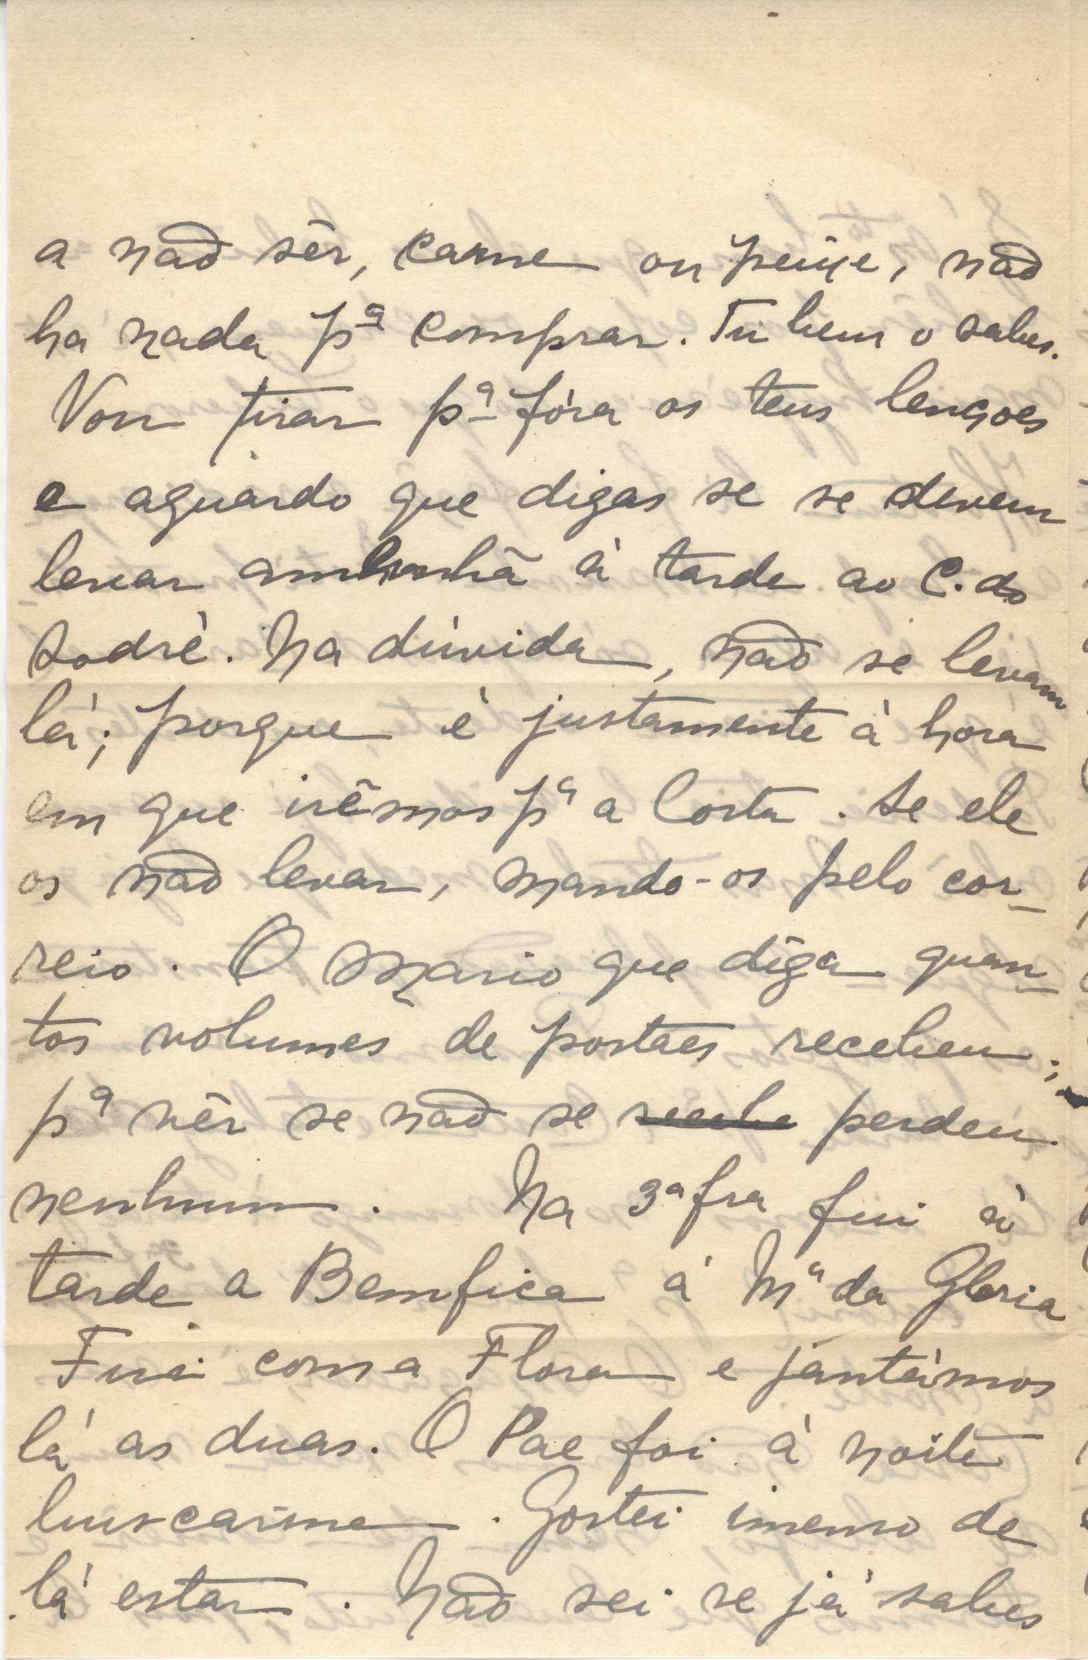 a não sêr, carne ou peixe, não
ha nada pª comprar. Tu bem o sabes.
Vou tirar pª fóra os teus lençoes
e aguardo que digas se se devem
levar amhanhã à tarde ao C. do
Sodré. Na dúvida, não se levam
lá; porque é justamente à hora
em que irêmos pª a Costa. Se ele
os não levar, mando-os pelo cor-
reio. O Mario que diga quan-
tos volumes de postaes recebeu;
pª vêr se não se perdeu
nenhum. Na 3ª fra fui à
tarde a Bemfica á Mª da Gloria
Fui com a Flora e jantámos
lá as duas. O Pae foi à noite
buscar-me. Gostei imenso de
lá estar. Não sei se já sabes